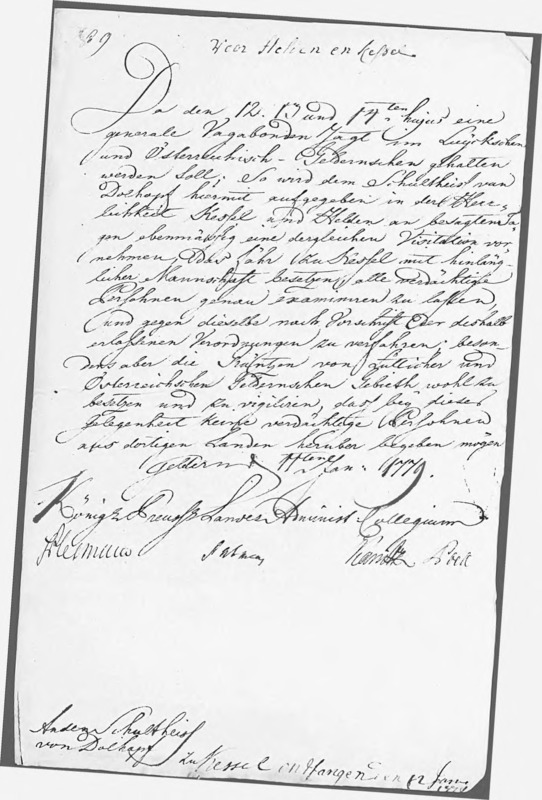 89
Voor Helden en Kessel
Da den 12. 13 und 14ten hujus eine
generale Vagabonden Jagt im Luyckschen
und Österreichisch-Geldernschen gehalten
werden soll; So wird dem Schultheis van
Dolhapf hiermit aufgegeben in der Herr-
lichkeit Kessel und Helden an besagten Ta-
gen ebenmässig eine dergleichen Visitation vor-
nehmen, das fahr zu Kessel mit hinläng-
licher Mannschaft besetzen, alle verdächtige
Persohnen genau examiniren zu lassen,
und gegen dieselbe nach Vorschrift der deshalb
erlassenen Verordnungen zu verfahren; beson-
ders aber die Gräntzen von Lütticher und
Österreichschen Geldernschen Gebieth wohl zu
besetzen und zu vigiliren, das bey dieser
Gelegenheit keine verdächtige Persohnen
aus dortigen Landen herüber begeben mögen
Geldern d 11ten Jan: 1779.
Königl. Preuss. Landes Administ. Collegium
Coninx
An den Schultheiss
von Dolhapf
Zu Kessel entfangen den 12 Jan